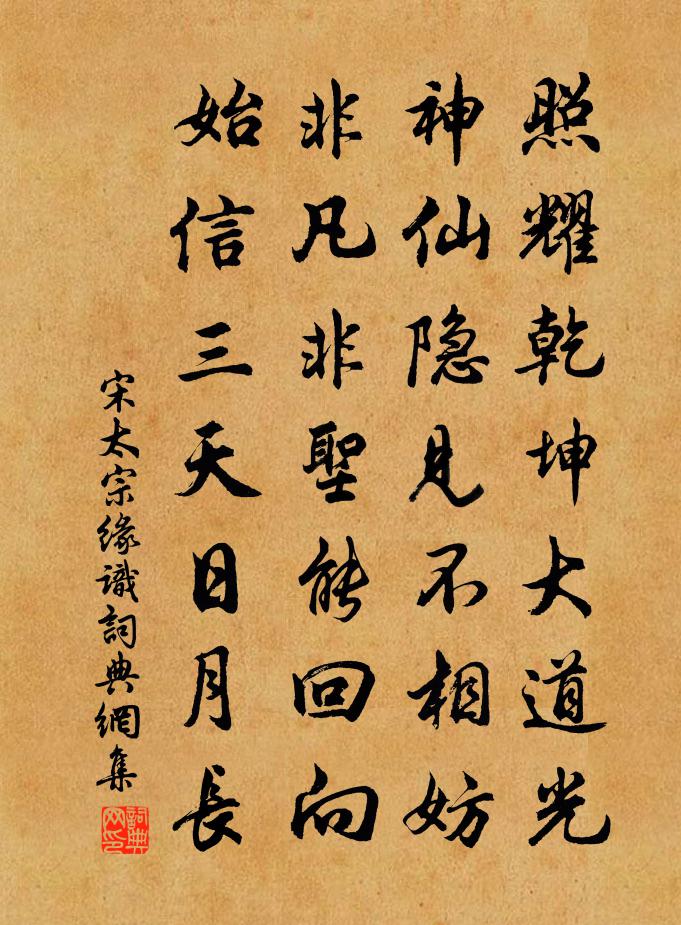 照耀乾坤大道光
神仙隐見不相妨
非凡非聖能回向
始信三天日月長
宋太宗緣識詞典網集
詞典网印